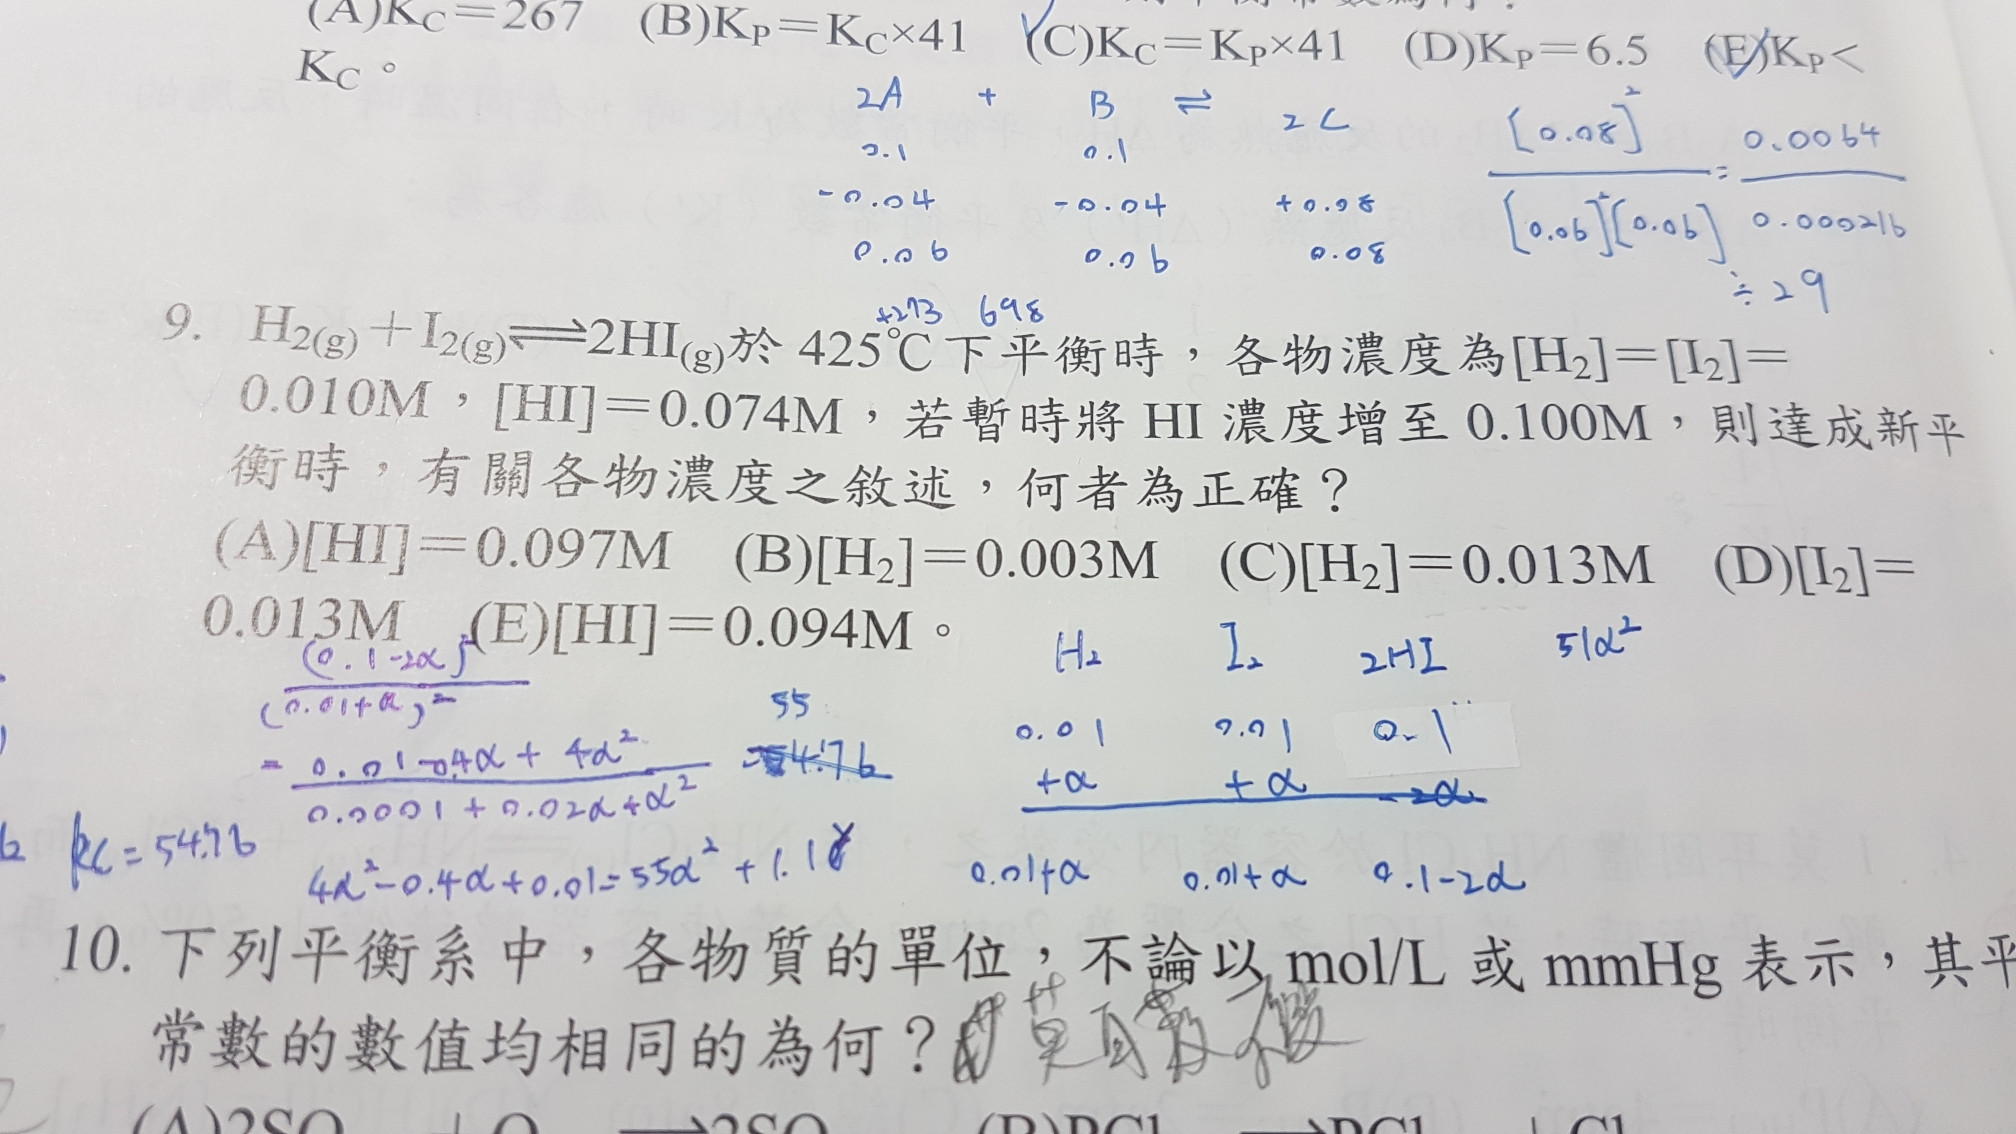 (A)KC＝267 (B)KP＝KC×41 (C)KC＝KP×41 (D)KP＝6.5 (E)KP＜
KC。
2A + B ⇌ 2C
0.1 0.1
-0.04 -0.04 +0.08
0.06 0.06 0.08
[0.08]² / [0.06]²[0.06] = 0.0064 / 0.000216
≑ 29
+273 698
9. H2(g)＋I2(g)⇌2HI(g)於 425℃下平衡時，各物濃度為[H2]＝[I2]＝
0.010M，[HI]＝0.074M，若暫時將 HI 濃度增至 0.100M，則達成新平
衡時，有關各物濃度之敘述，何者為正確？
(A)[HI]＝0.097M (B)[H2]＝0.003M (C)[H2]＝0.013M (D)[I2]＝
0.013M (E)[HI]＝0.094M。
(0.1-2α)² / (0.01+α)²
= 0.01-0.4α+4α² / 0.0001+0.02α+α²
55
=54.76
kc=54.76
4α²-0.4α+0.01=55α²+1.1α
H2 I2 2HI 51α²
0.01 0.01 0.1
+α +α -2α
0.01+α 0.01+α 0.1-2α
10. 下列平衡系中，各物質的單位，不論以 mol/L 或 mmHg 表示，其平
常數的數值均相同的為何？
(A)2SO ＋O ⟶2SO (B)PCl ⟶PCl ＋Cl